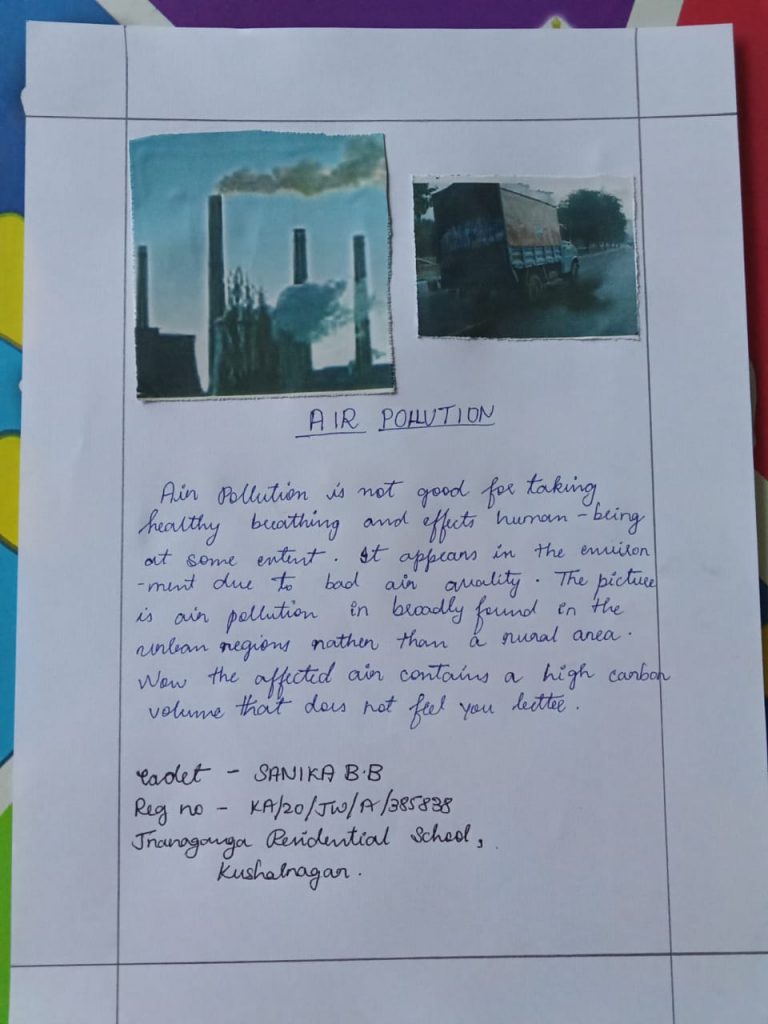 AIR POLLUTION
Air Pollution is not good for taking
healthy breathing and effects human-being
at some entent. It appears in the environ
-ment due to bad air quality. The picture
is air pollution in broadly found in the
urban regions rather than a rural area.
Now the affected air contains a high carbon
volume that does not feel you better.
cadet - SANIKA B.B
Reg no - KA/20/JW/A/385838
Jnanaganga Residential School,
Kushalnagar.